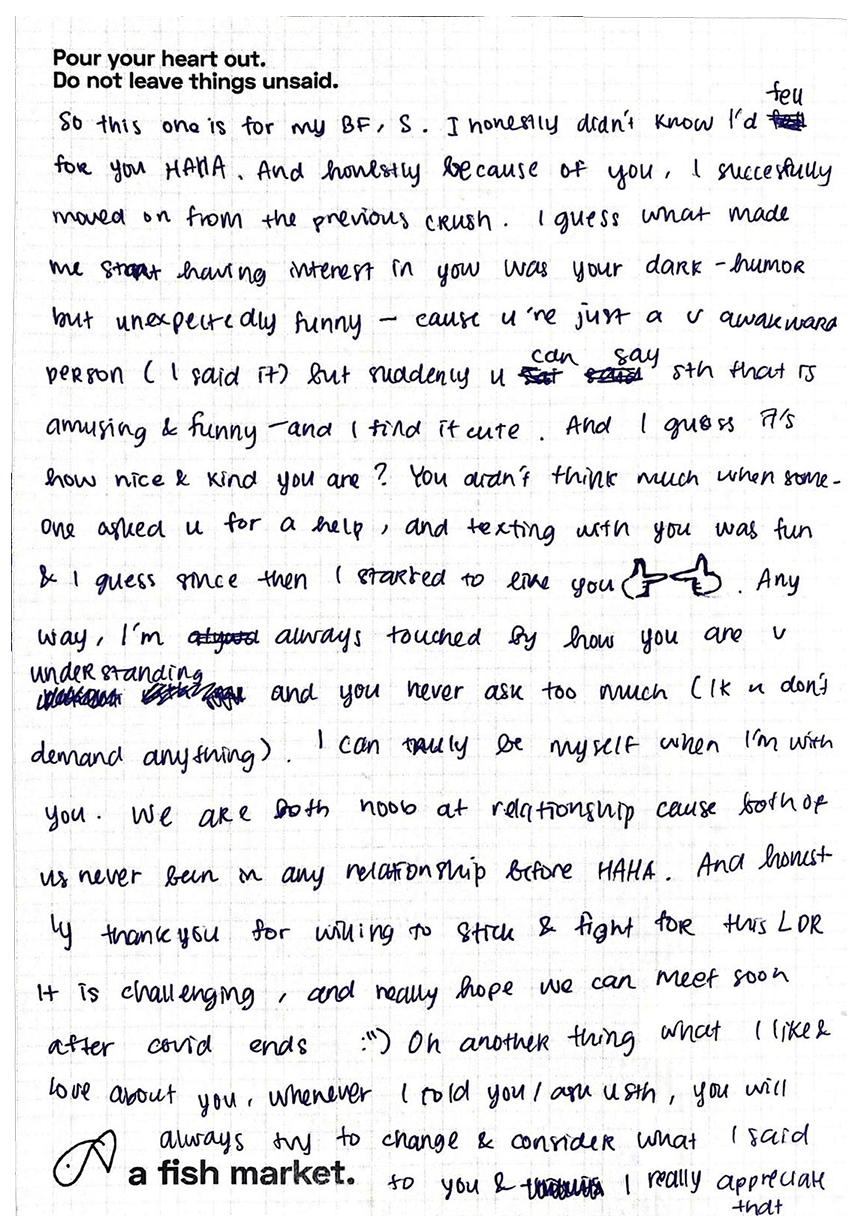 Pour your heart out.
Do not leave things unsaid.
So this one is for my BF, S. I honestly didn't know I'd fell
for you HAHA. And honestly because of you, I succesfully
moved on from the previous crush. I guess what made
me start having interest in you was your dark-humor
but unexpectedly funny - cause u're just a v awakward
person (I said it) but suddenly u can say sth that is
amusing & funny - and I find it cute. And I guess it's
how nice & kind you are? You didn't think much when some-
one asked u for a help, and texting with you was fun
& I guess since then I started to like you. Any
way, I'm always touched by how you are v
understanding and you never ask too much (Ik u don't
demand anything). I can truly be myself when I'm with
you. We are both noob at relationship cause both of
us never been in any relationship before HAHA. And honest
ly thank you for willing to stick & fight for this LDR
It is challenging, and really hope we can meet soon
after covid ends :")) Oh another thing what I like &
love about you, whenever I told you / ask u sth, you will
always try to change & consider what I said
to you & I really appreciate
that
a fish market.